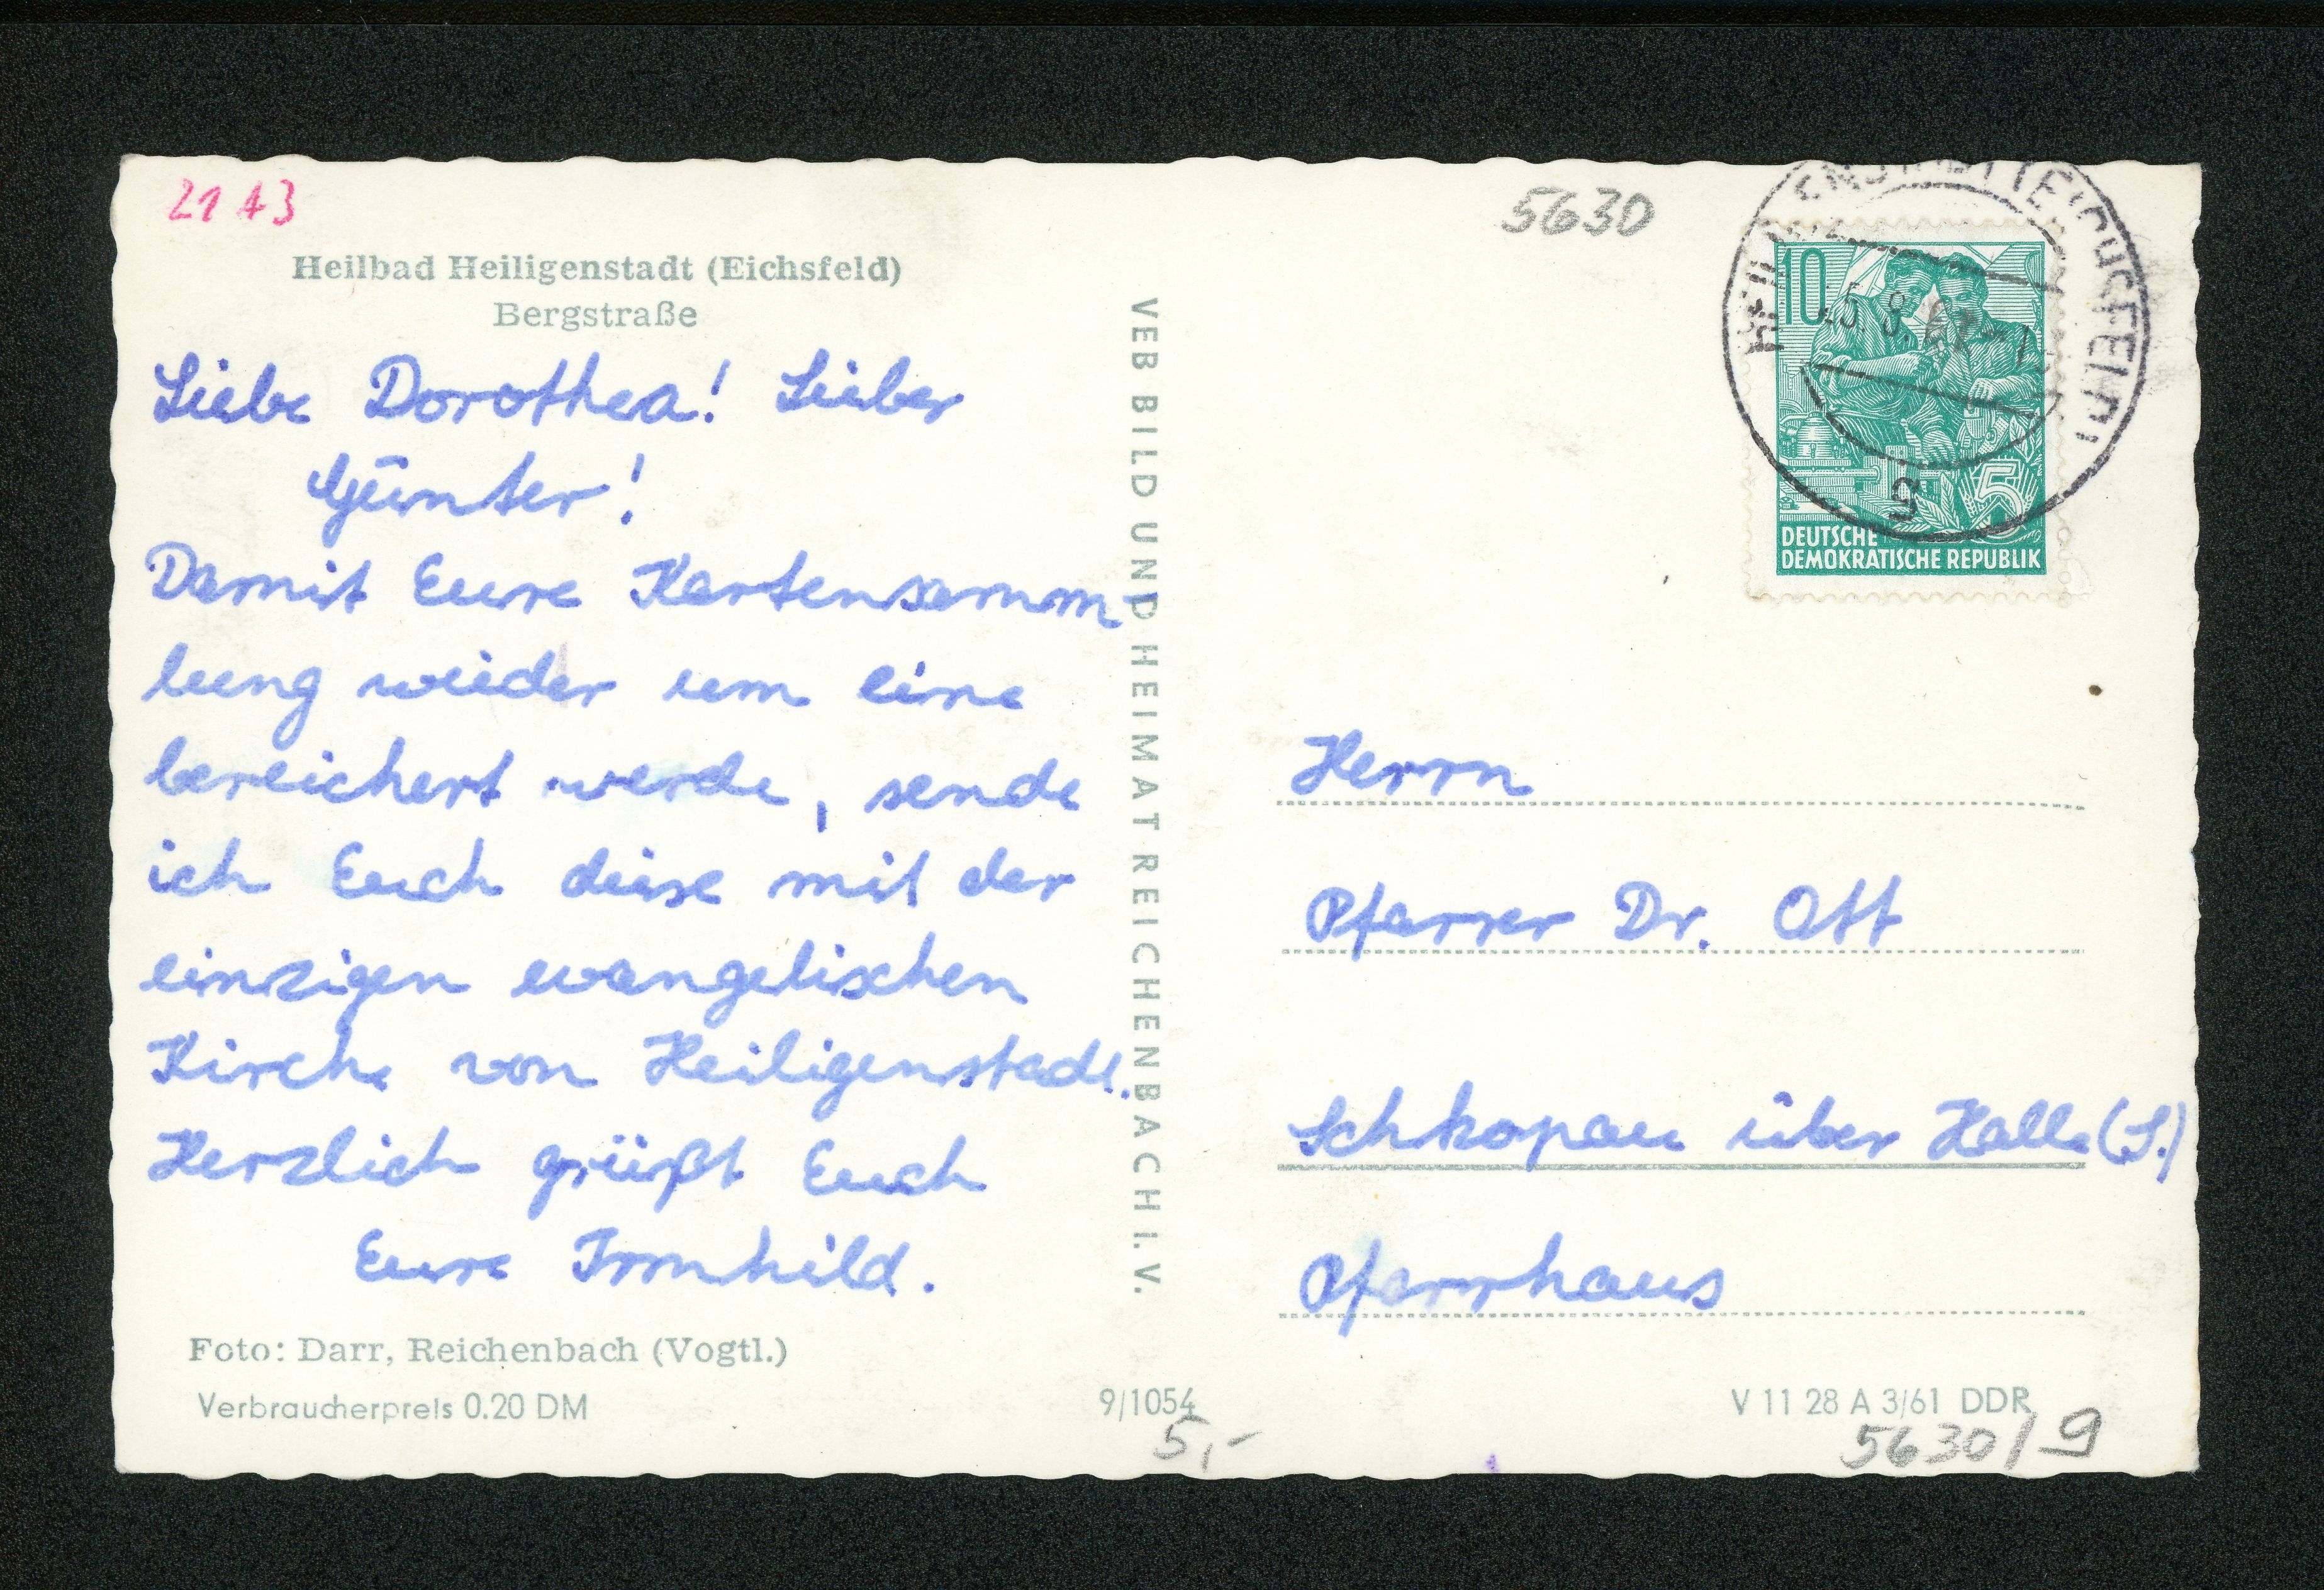 2143
Heilbad Heiligenstadt (Eichsfeld)
Bergstraße
Liebe Dorothea! Lieber
Günter!
Damit Eure Kartensamm-
lung wieder um eine
bereichert werde, sende
ich Euch diese mit der
einzigen evangelischen
Kirche von Heiligenstadt.
Herzlich grüßt Euch
Eure Irmhild.
Foto: Darr, Reichenbach (Vogtl.)
Verbraucherpreis 0.20 DM
VEB BILD UND HEIMAT REICHENBACH I. V.
9/1054
5,-
5630
10
5
DEUTSCHE
DEMOKRATISCHE REPUBLIK
Herrn
Pfarrer Dr. Ott
Schkopau über Halle (S.)
Pfarrhaus
V 11 28 A 3/61 DDR
5630/9